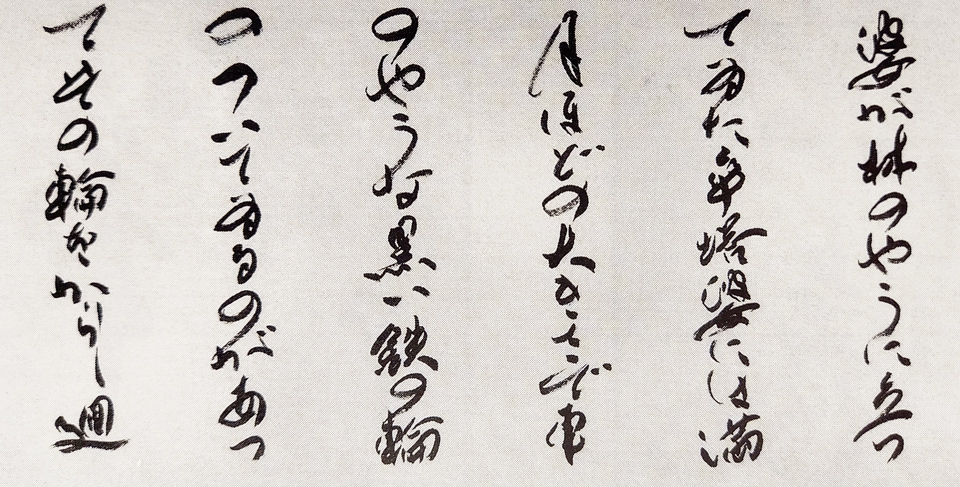 婆が林のやうに立つ
てゐた卒塔婆には満
月ほどの大きさで車
のやうな黒い鉄の輪
のついてゐるのがあつ
てその輪をからから廻